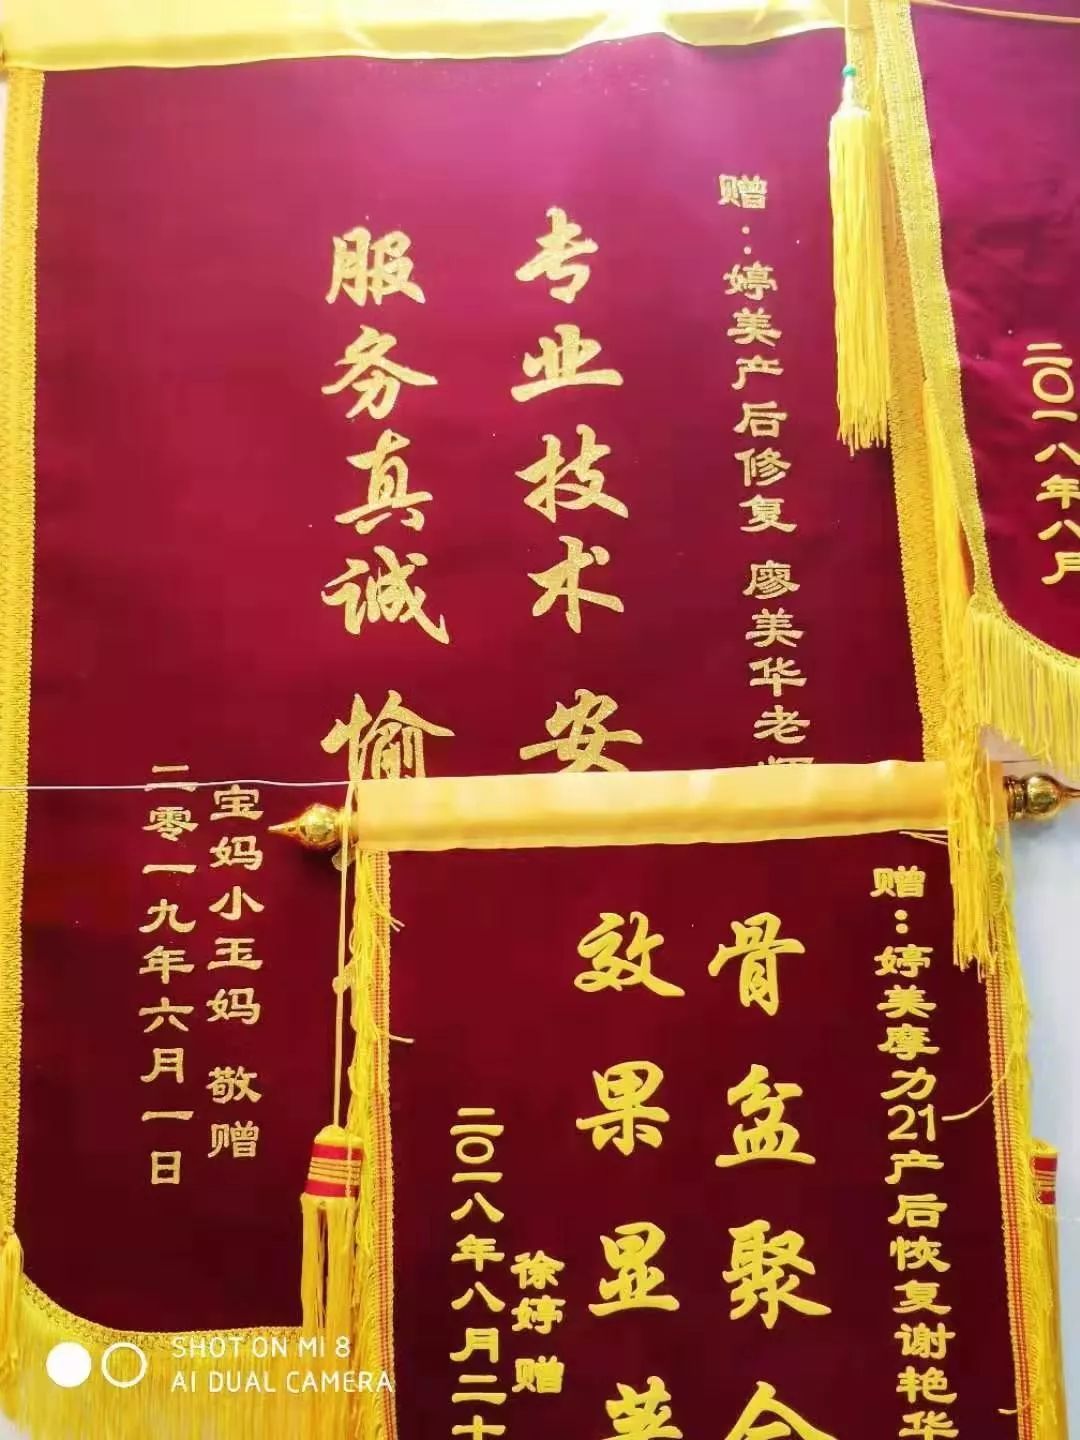 赠：婷美产后修复 廖美华老师
专业技术 安
服务真诚 愉
宝妈小玉妈 敬赠
二零一九年六月一日
赠：婷美摩力21产后恢复谢艳华
骨盆聚合
效果显著
徐婷 赠
二〇一八年八月二十
二〇一八年八月
SHOT ON MI 8
AI DUAL CAMERA